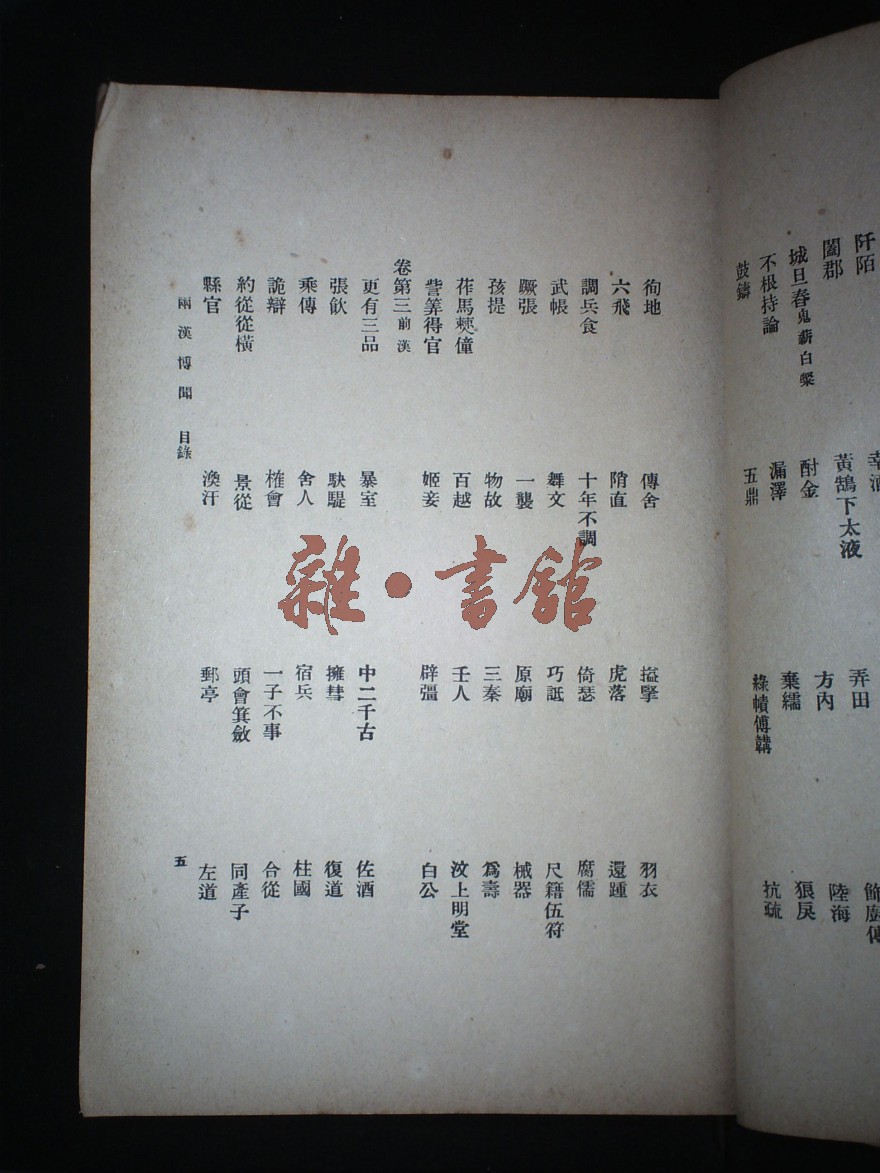 阡陌
闔郡 黃鵠下太液 弄田
城旦舂鬼薪白粲 酎金 方內 陸海
不根持論 漏澤 棄繻 狠戾
鼓鑄 五鼎 綠幘傅韝 抗疏
徇地 傳舍 搤掔 羽衣
六飛 隋直 虎落 還踵
調兵食 十年不調 倚瑟 腐儒
武帳 舞文 巧詆 尺籍伍符
蹶張 一襲 原廟 械器
孩提 物故 三秦 爲壽
茬馬㯡僮 百越 壬人 汶上明堂
訾筭得官 姬妾 辟彊 白公
卷第三前漢
更有三品 暴室 中二千古 佐酒
張飮 駃騠 擁彗 復道
乘傳 舍人 宿兵 柱國
詭辯 榷會 一子不事 合從
約從從橫 景從 頭會箕斂 同產子
縣官 渙汗 郵亭 左道
兩漢博聞 目錄 五
雜·書館